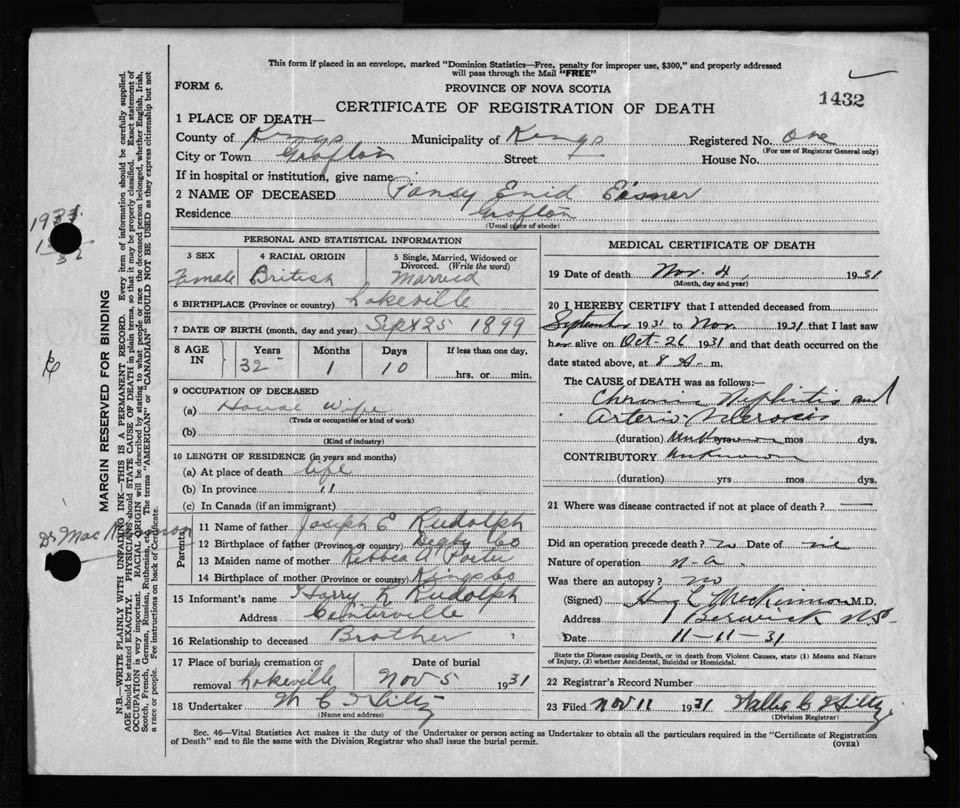 This form if placed in an envelope, marked "Dominion Statistics—Free, penalty for improper use, $300," and properly addressed
will pass through the Mail "FREE"
FORM 6.
PROVINCE OF NOVA SCOTIA
1432
CERTIFICATE OF REGISTRATION OF DEATH
1 PLACE OF DEATH—
County of Kings Municipality of Kings Registered No. One
(For use of Registrar General only)
City or Town Grafton Street House No.
If in hospital or institution, give name
2 NAME OF DECEASED Pansy Enid Eisner
Residence Grafton
(Usual place of abode)
PERSONAL AND STATISTICAL INFORMATION
3 SEX 4 RACIAL ORIGIN 5 Single, Married, Widowed or
Divorced. (Write the word)
Female British Married
6 BIRTHPLACE (Province or country) Lakeville
7 DATE OF BIRTH (month, day and year) Sept 25 1899
8 AGE IN Years Months Days If less than one day,
32 1 10 hrs. or min.
9 OCCUPATION OF DECEASED
(a) House Wife
(Trade or occupation or kind of work)
(b)
(Kind of industry)
10 LENGTH OF RESIDENCE (in years and months)
(a) At place of death life
(b) In province "
(c) In Canada (if an immigrant)
Parents
11 Name of father Joseph E Rudolph
12 Birthplace of father (Province or country) Digby Co
13 Maiden name of mother Rebbeca A Porter
14 Birthplace of mother (Province or country) Kings Co
15 Informant's name Harry K Rudolph
Address Centirville
16 Relationship to deceased Brother
17 Place of burial, cremation or Date of burial
removal Lakeville Nov 5 1931
18 Undertaker W C Hiltz
(Name and address)
MEDICAL CERTIFICATE OF DEATH
19 Date of death Nov. 4, 1931
(Month, day and year)
20 I HEREBY CERTIFY that I attended deceased from
September 1931 to Nov. 1931 that I last saw
her alive on Oct-26 1931 and that death occurred on the
date stated above, at 8 A. m.
The CAUSE of DEATH was as follows:—
Chronic Nephritis and
Arterio-Sclerosis
(duration) Unknown mos dys.
CONTRIBUTORY Unknown
(duration) yrs mos dys.
21 Where was disease contracted if not at place of death?
Did an operation precede death? no Date of nie
Nature of operation n-a.
Was there an autopsy? no
(Signed) Hugh L MacKinnon M.D.
Address Berwick NS-
Date 11-11-31
State the Disease causing Death, or in death from Violent Causes, state (1) Means and Nature
of Injury, (2) whether Accidental, Suicidal or Homicidal.
22 Registrar's Record Number
23 Filed Nov 11 1931 Wallis C Hiltz
(Division Registrar)
Sec. 46—Vital Statistics Act makes it the duty of the Undertaker or person acting as Undertaker to obtain all the particulars required in the "Certificate of Registration
of Death" and to file the same with the Division Registrar who shall issue the burial permit.
(OVER)
MARGIN RESERVED FOR BINDING
N.B.—WRITE PLAINLY WITH UNFADING INK—THIS IS A PERMANENT RECORD. Every item of information should be carefully supplied.
AGE should be stated EXACTLY. PHYSICIANS should STATE CAUSE OF DEATH in plain terms, so that it may be properly classified. Exact statement of
OCCUPATION is very important. RACIAL ORIGIN will be described by stating to what people or race the deceased person belonged, whether English, Irish,
Scotch, French, German, Russian, Ruthenian, etc. The terms "AMERICAN" or "CANADIAN" SHOULD NOT BE USED as they express citizenship but not
a race or people. See instructions on back of Certificate.
Dr MacKinnon